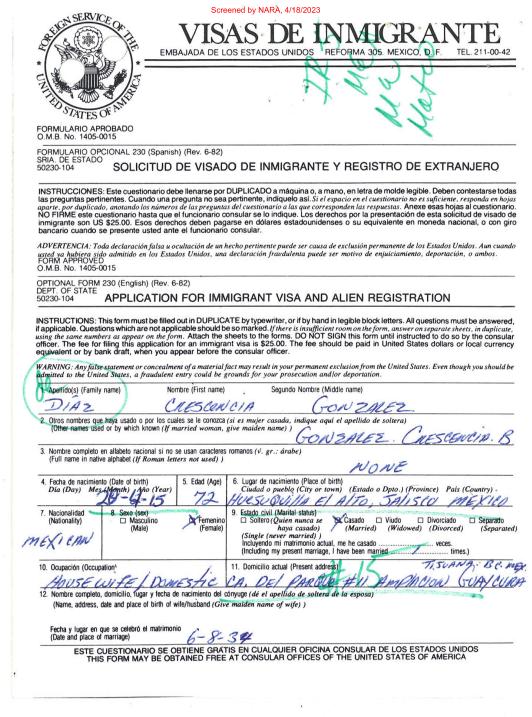 Screened by NARA, 4/18/2023
FOREIGN SERVICE OF THE UNITED STATES OF AMERICA
VISAS DE INMIGRANTE
EMBAJADA DE LOS ESTADOS UNIDOS REFORMA 305. MEXICO, D. F. TEL. 211-00-42
FORMULARIO APROBADO
O.M.B. No. 1405-0015
FORMULARIO OPCIONAL 230 (Spanish) (Rev. 6-82)
SRIA. DE ESTADO
50230-104 SOLICITUD DE VISADO DE INMIGRANTE Y REGISTRO DE EXTRANJERO
INSTRUCCIONES: Este cuestionario debe llenarse por DUPLICADO a máquina o, a mano, en letra de molde legible. Deben contestarse todas
las preguntas pertinentes. Cuando una pregunta no sea pertinente, indíquelo así. Si el espacio en el cuestionario no es suficiente, responda en hojas
aparte, por duplicado, anotando los números de las preguntas del cuestionario a las que corresponden las respuestas. Anexe esas hojas al cuestionario.
NO FIRME este cuestionario hasta que el funcionario consular se lo indique. Los derechos por la presentación de esta solicitud de visado de
inmigrante son US $25.00. Esos derechos deben pagarse en dólares estadounidenses o su equivalente en moneda nacional, o con giro
bancario cuando se presente usted ante el funcionario consular.
ADVERTENCIA: Toda declaración falsa u ocultación de un hecho pertinente puede ser causa de exclusión permanente de los Estados Unidos. Aun cuando
usted ya hubiera sido admitido en los Estados Unidos, una declaración fraudulenta puede ser motivo de enjuiciamiento, deportación, o ambos.
FORM APPROVED
O.M.B. No. 1405-0015
OPTIONAL FORM 230 (English) (Rev. 6-82)
DEPT. OF STATE
50230-104 APPLICATION FOR IMMIGRANT VISA AND ALIEN REGISTRATION
INSTRUCTIONS: This form must be filled out in DUPLICATE by typewriter, or if by hand in legible block letters. All questions must be answered,
if applicable. Questions which are not applicable should be so marked. If there is insufficient room on the form, answer on separate sheets, in duplicate,
using the same numbers as appear on the form. Attach the sheets to the forms. DO NOT SIGN this form until instructed to do so by the consular
officer. The fee for filing this application for an immigrant visa is $25.00. The fee should be paid in United States dollars or local currency
equivalent or by bank draft, when you appear before the consular officer.
WARNING: Any false statement or concealment of a material fact may result in your permanent exclusion from the United States. Even though you should be
admitted to the United States, a fraudulent entry could be grounds for your prosecution and/or deportation.
Apellido(s) (Family name) Nombre (First name) Segundo Nombre (Middle name)
DIAZ CRESCENCIA GONZALEZ
2. Otros nombres que haya usado o por los cuales se le conozca (si es mujer casada, indique aquí el apellido de soltera)
(Other names used or by which known (If married woman, give maiden name) )
GONZALEZ. CRESCENCIA. B
3. Nombre completo en alfabeto nacional si no se usan caracteres romanos (v. gr.: árabe)
(Full name in native alphabet (If Roman letters not used) )
NONE
4. Fecha de nacimiento (Date of birth) 5. Edad (Age) 6. Lugar de nacimiento (Place of birth)
Día (Day) Mes (Month) Año (Year) Ciudad o pueblo (City or town) (Estado o Dpto.) (Province) País (Country)
72 HUESUQUILLA El AlTO, JALISCO MEXICO
7. Nacionalidad 8. Sexo (sex) 9. Estado civil (Marital status)
(Nationality) Masculino Femenino Soltero (Quien nunca se Casado Viudo Divorciado Separado
(Male) (Female) haya casado) (Married) (Widowed) (Divorced) (Separated)
(Single (never married) )
MEXICAN
Incluyendo mi matrimonio actual, me he casado veces.
(Including my present marriage, I have been married times.)
10. Ocupación (Occupation) 11. Domicilio actual (Present address) TIJUANA, BC. MEX.
HOUSEWIFE/DOMESTIC CA. DEL PARQUE #11 AMPLACION GUAYCURA
12. Nombre completo, domicilio, fugar y fecha de nacimiento del cónyuge (dé el apellido de soltera de la esposa)
(Name, address, date and place of birth of wife/husband (Give maiden name of wife) )
Fecha y lugar en que se celebró el matrimonio
(Date and place of marriage) 6-8-34
ESTE CUESTIONARIO SE OBTIENE GRATIS EN CUALQUIER OFICINA CONSULAR DE LOS ESTADOS UNIDOS
THIS FORM MAY BE OBTAINED FREE AT CONSULAR OFFICES OF THE UNITED STATES OF AMERICA